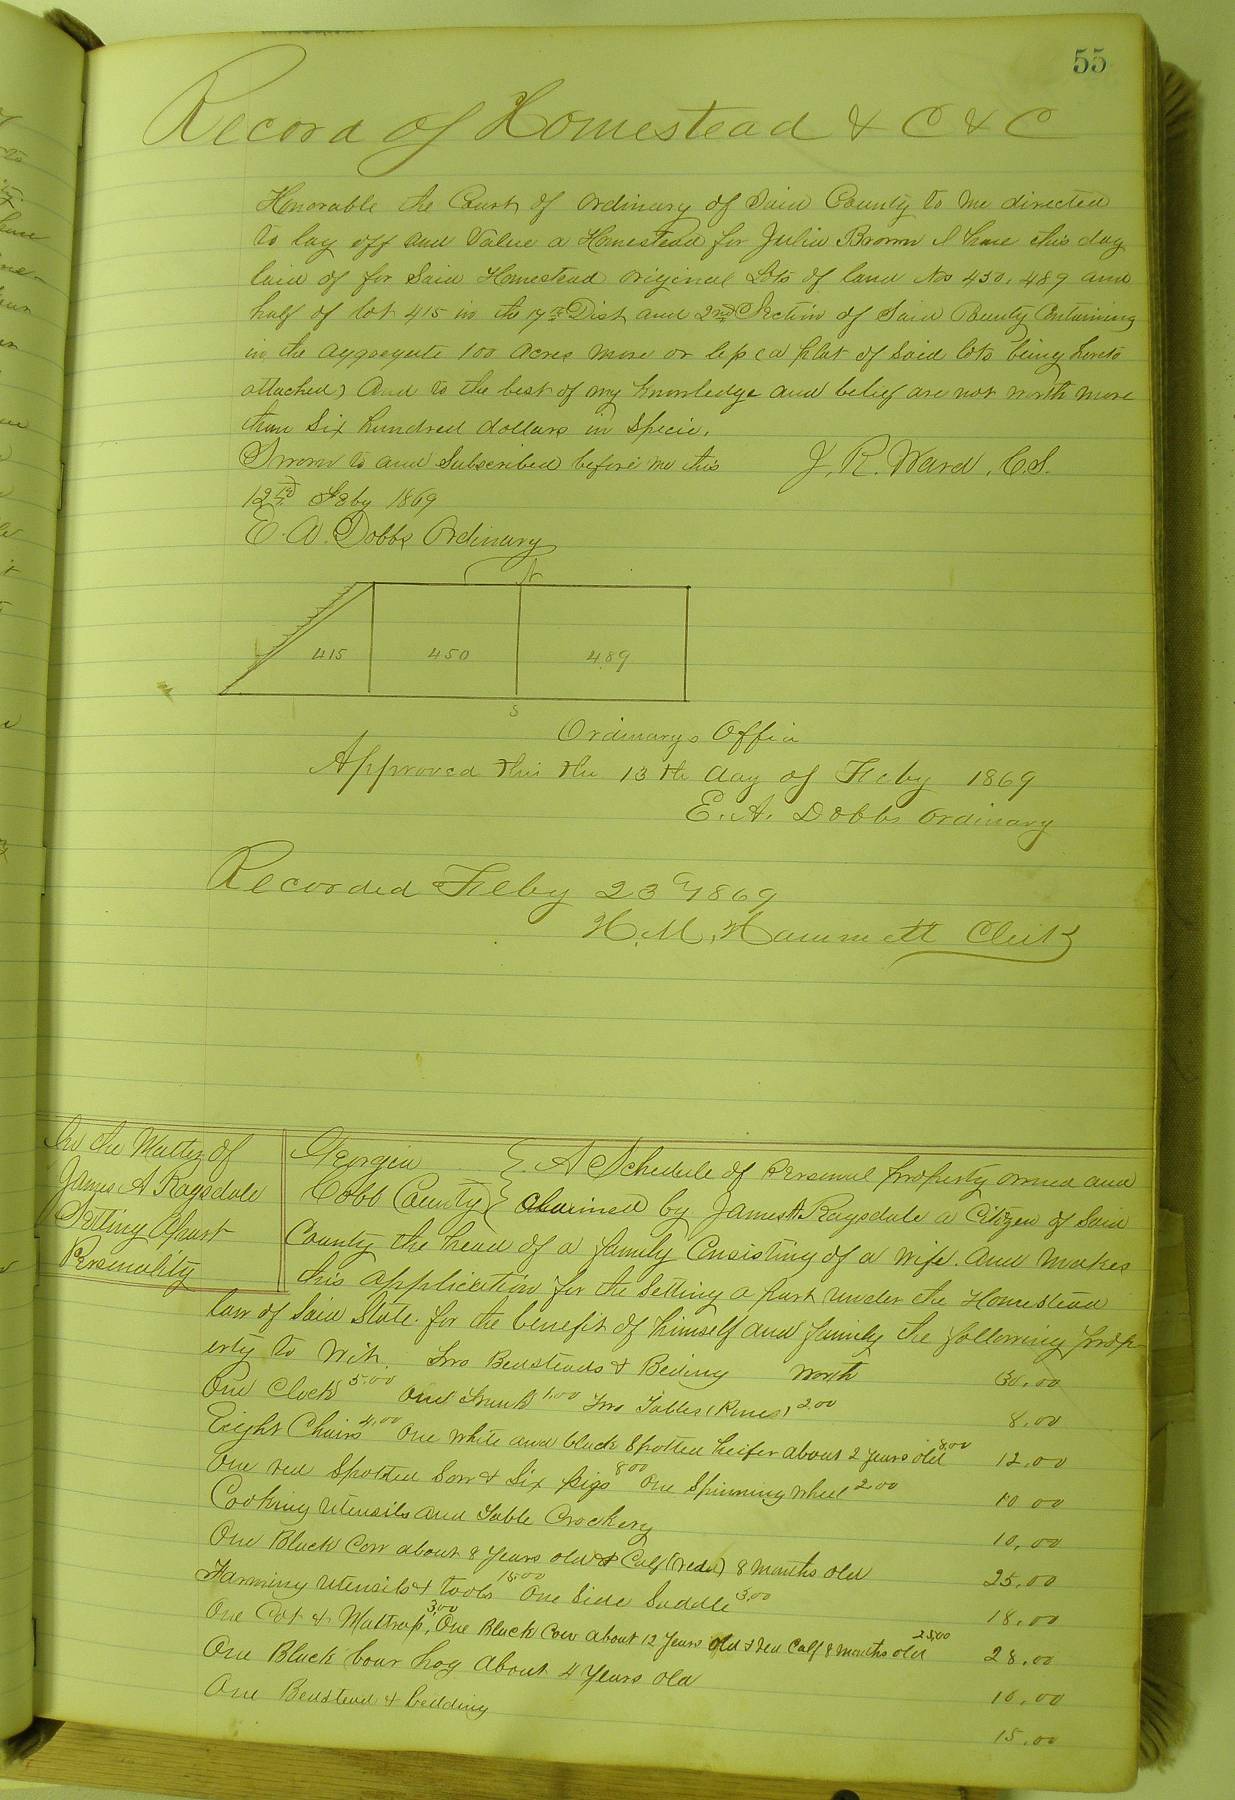 55
Record of Homestead & C & C
Honorable the Court of Ordinary of Said County to me directed
to lay off and Value a Homestead for Julia Brown I have this day
laid of for Said Homestead original Lots of land Nos 450, 489 and
half of lot 415 in the 17th Dist and 2nd Section of Said County Containing
in the aggregate 100 acres more or less (a plat of Said lots being hereto
attached) And to the best of my knowledge and belief are not worth more
than Six hundred dollars in Specie.
Sworn to and Subscribed before me this J. R. Ward, C.S.
12th Feby 1869
E. A. Dobbs Ordinary
N
415 450 489
S
Ordinarys Office
Approved this the 13th day of Feby 1869
E. A. Dobbs Ordinary
Recorded Feby 23d 1869
H. M. Hammett Clerk
In the Matter of
James A Ragsdale
Setting Apart
Personality
Georgia } A Schedule of Personal property owned and
Cobb County } claimed by James A. Ragsdale a Citizen of Said
County the head of a family Consisting of a wife. and makes
this application for the Setting a part under the Homestead
law of Said State. for the benefit of himself and family the following prop
erty to Wit. Two Bedsteads & Beding worth 30.00
One Clock 5.00 One Trunk 1.00 Two Tables (Pines) 2.00 8.00
Eight Chairs 4.00 One white and black Spotted heifer about 2 years old 8.00 12.00
One red Spotted Sow & Six pigs 8.00 One Spinning wheel 2.00 10.00
Cooking Utensils and Table Crockery 10.00
One Black Cow about 8 Years old & Calf (red) 8 months old 25.00
Farming Utensils & tools 15.00 One Side Saddle 3.00 18.00
One Cot & Mattrass, 3.00 One Black Cow about 12 Years old & red Calf 8 months old 25.00 28.00
One Black boar hog about 4 Years old 10.00
One Bedstead & bedding 15.00